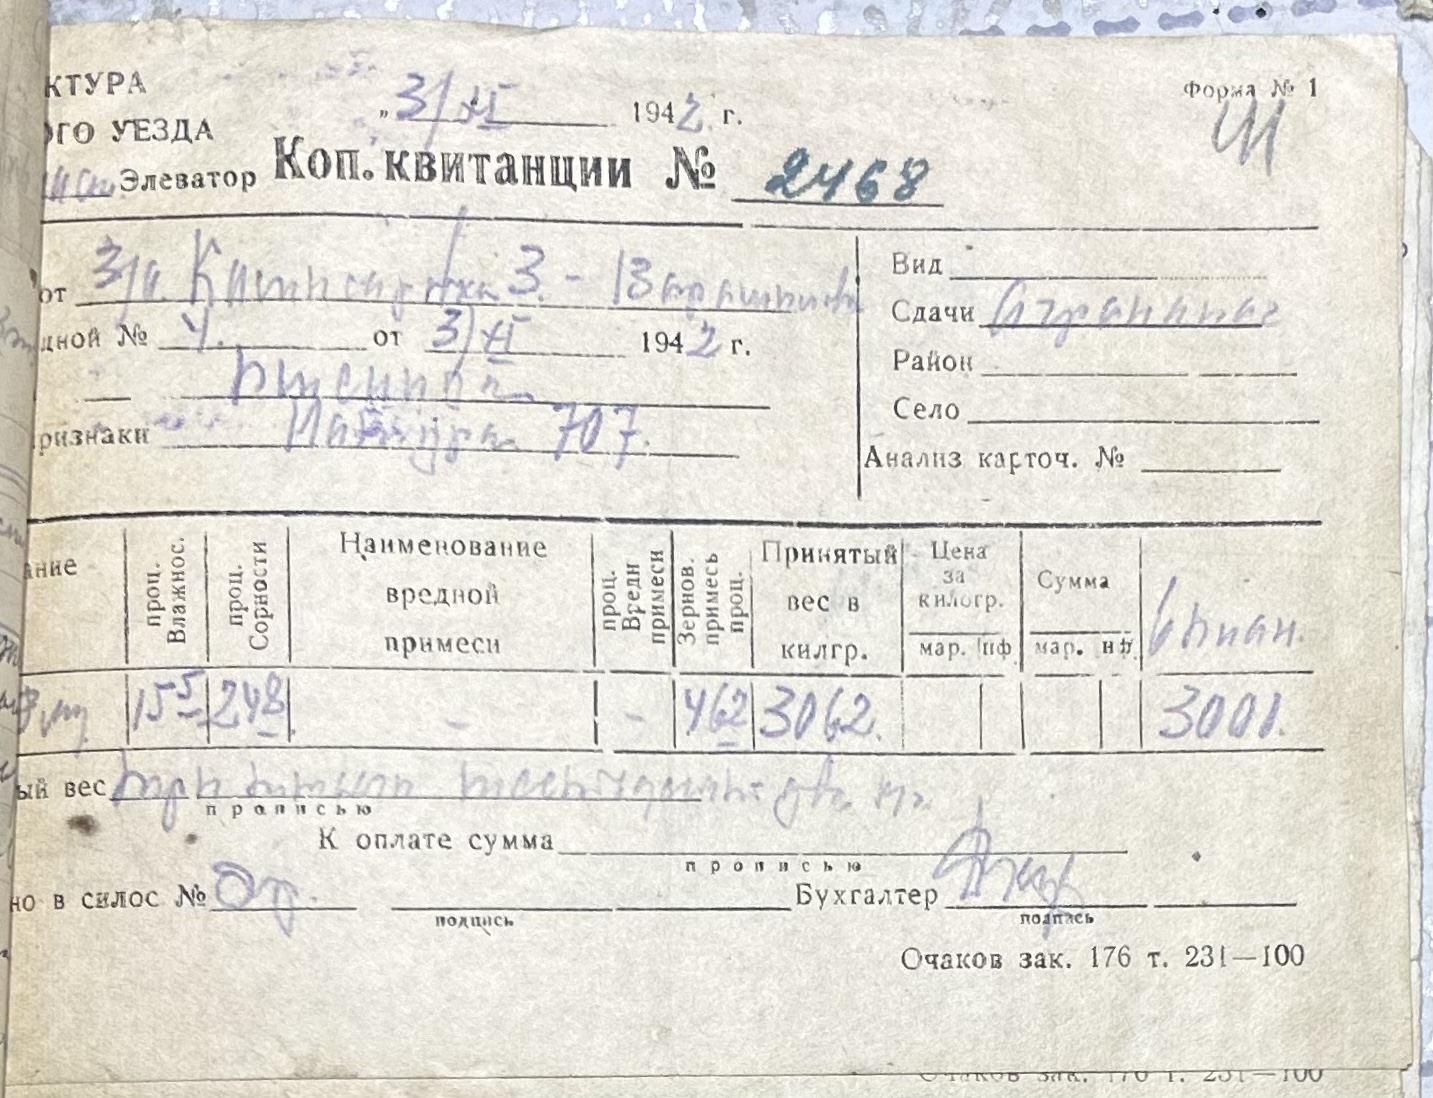 КТУРА
ОГО УЕЗДА
Элеватор
„3/XI 1942 г.
Форма № 1
Коп. квитанции № 2468
от З/а. З. -
дной № 4. от 3/XI 1942 г.
пшеница
ризнаки Натура 707.
Вид
Сдачи
Район
Село
Анализ карточ. №
ание
проц. Влажнос.
проц. Сорности
Наименование вредной примеси
проц. Вредн примеси
Зернов. примесь проц.
Принятый вес в килгр.
Цена за килогр.
мар. пф
Сумма
мар. пф.
15 5 248 - - 462 3062. 3001.
ый вес три тысячи шестьдесят два кг.
прописью
К оплате сумма
прописью
но в силос №
подпись
Бухгалтер
подпись
Очаков зак. 176 т. 231—100
Очаков зак. 176 т. 231—100